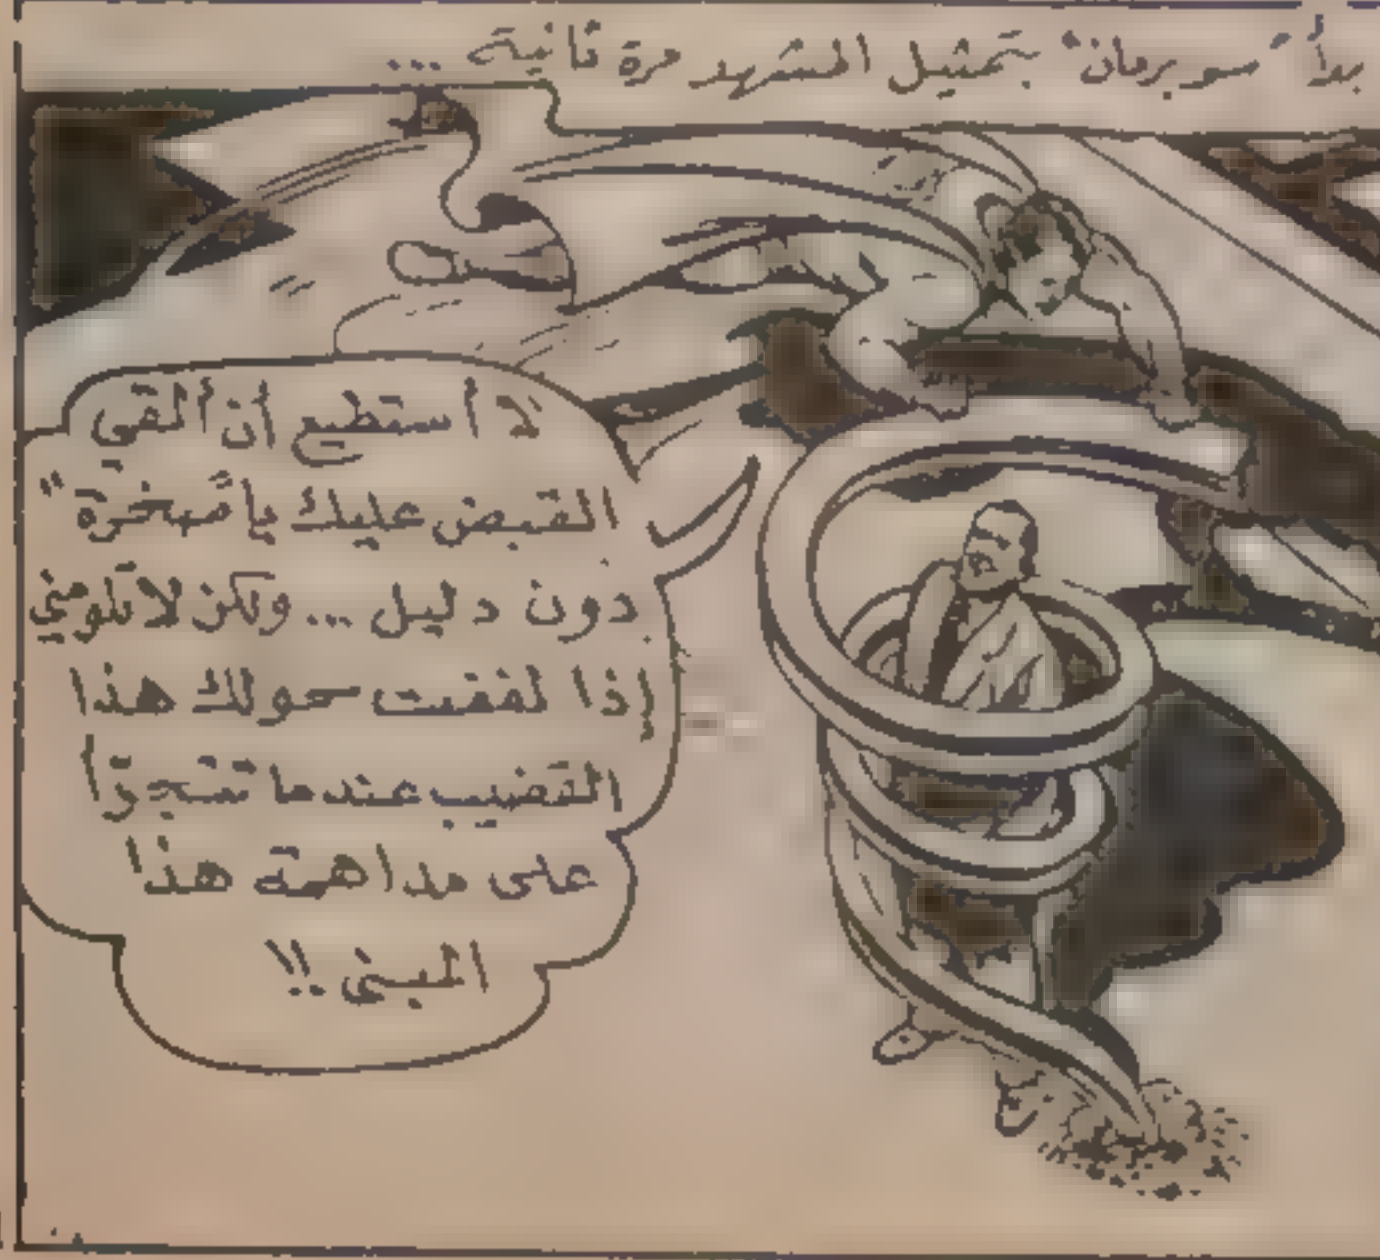 بدأ "سوبرمان" بتمثيل المشهد مرة ثانية ...
لا أستطيع أن ألقي
القبض عليك يا "صخرة"
دون دليل ... ولكن لا تلومني
إذا لففت حولك هذا
القضيب عندما تتجرّأ
على مداهمة هذا
المبنى !!